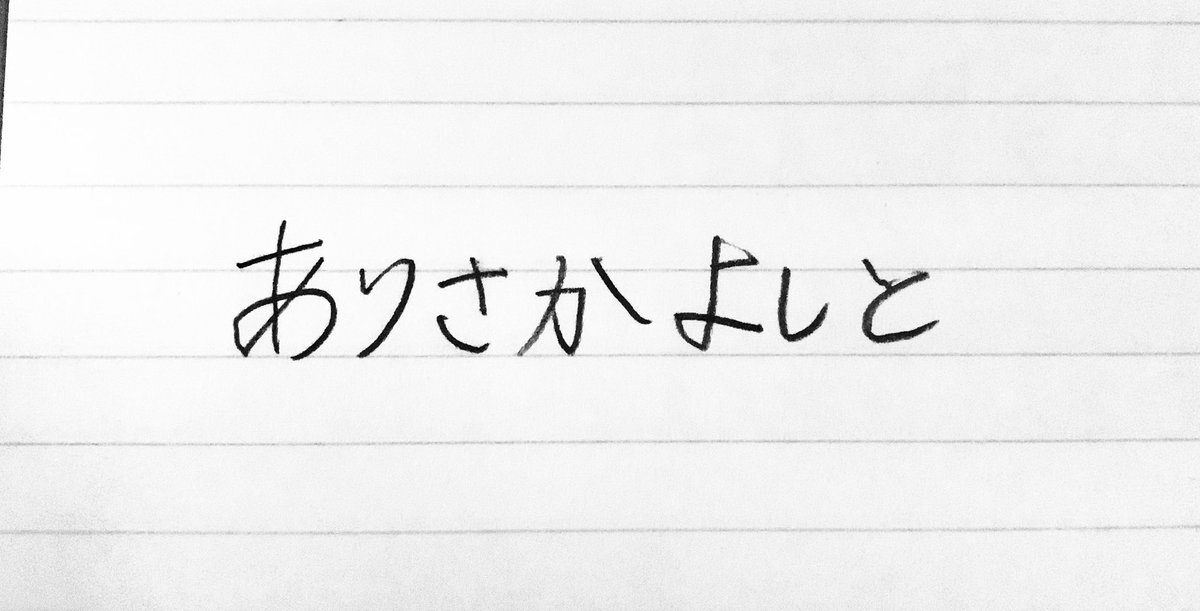 ありさかよしと